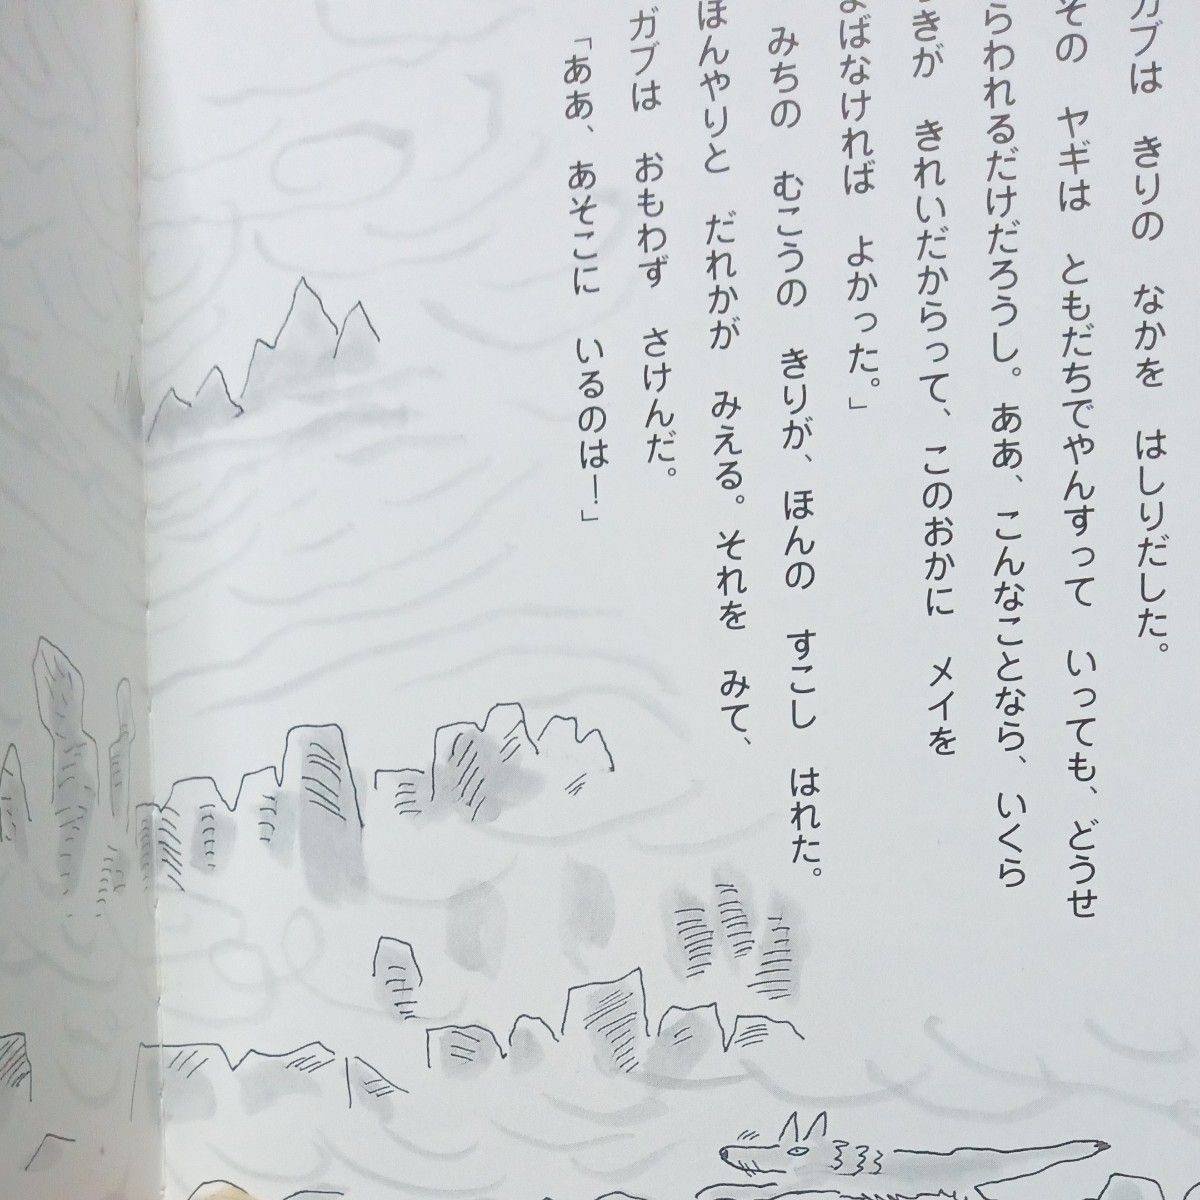 ガブは きりの なかを はしりだした。
その ヤギは ともだちでやんすって いっても、どうせ
らわれるだけだろうし。ああ、こんなことなら、いくら
きが きれいだからって、このおかに メイを
ばなければ よかった。」
みちの むこうの きりが、ほんの すこし はれた。
ほんやりと だれかが みえる。それを みて、
ガブは おもわず さけんだ。
「ああ、あそこに いるのは!」